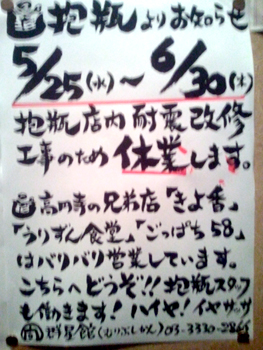 抱瓶よりお知らせ
5/25(水)～6/30(木)
抱瓶店内耐震改修
工事のため休業します。
高円寺の兄弟店「きよ香」
「うりずん食堂」「ごっぱち58」
はバリバリ営業しています。
こちらへどうぞ!!抱瓶スタッフ
も働きます!ハイヤ!イヤサッサ
群星館(むりぶしかん)03-3330-2865